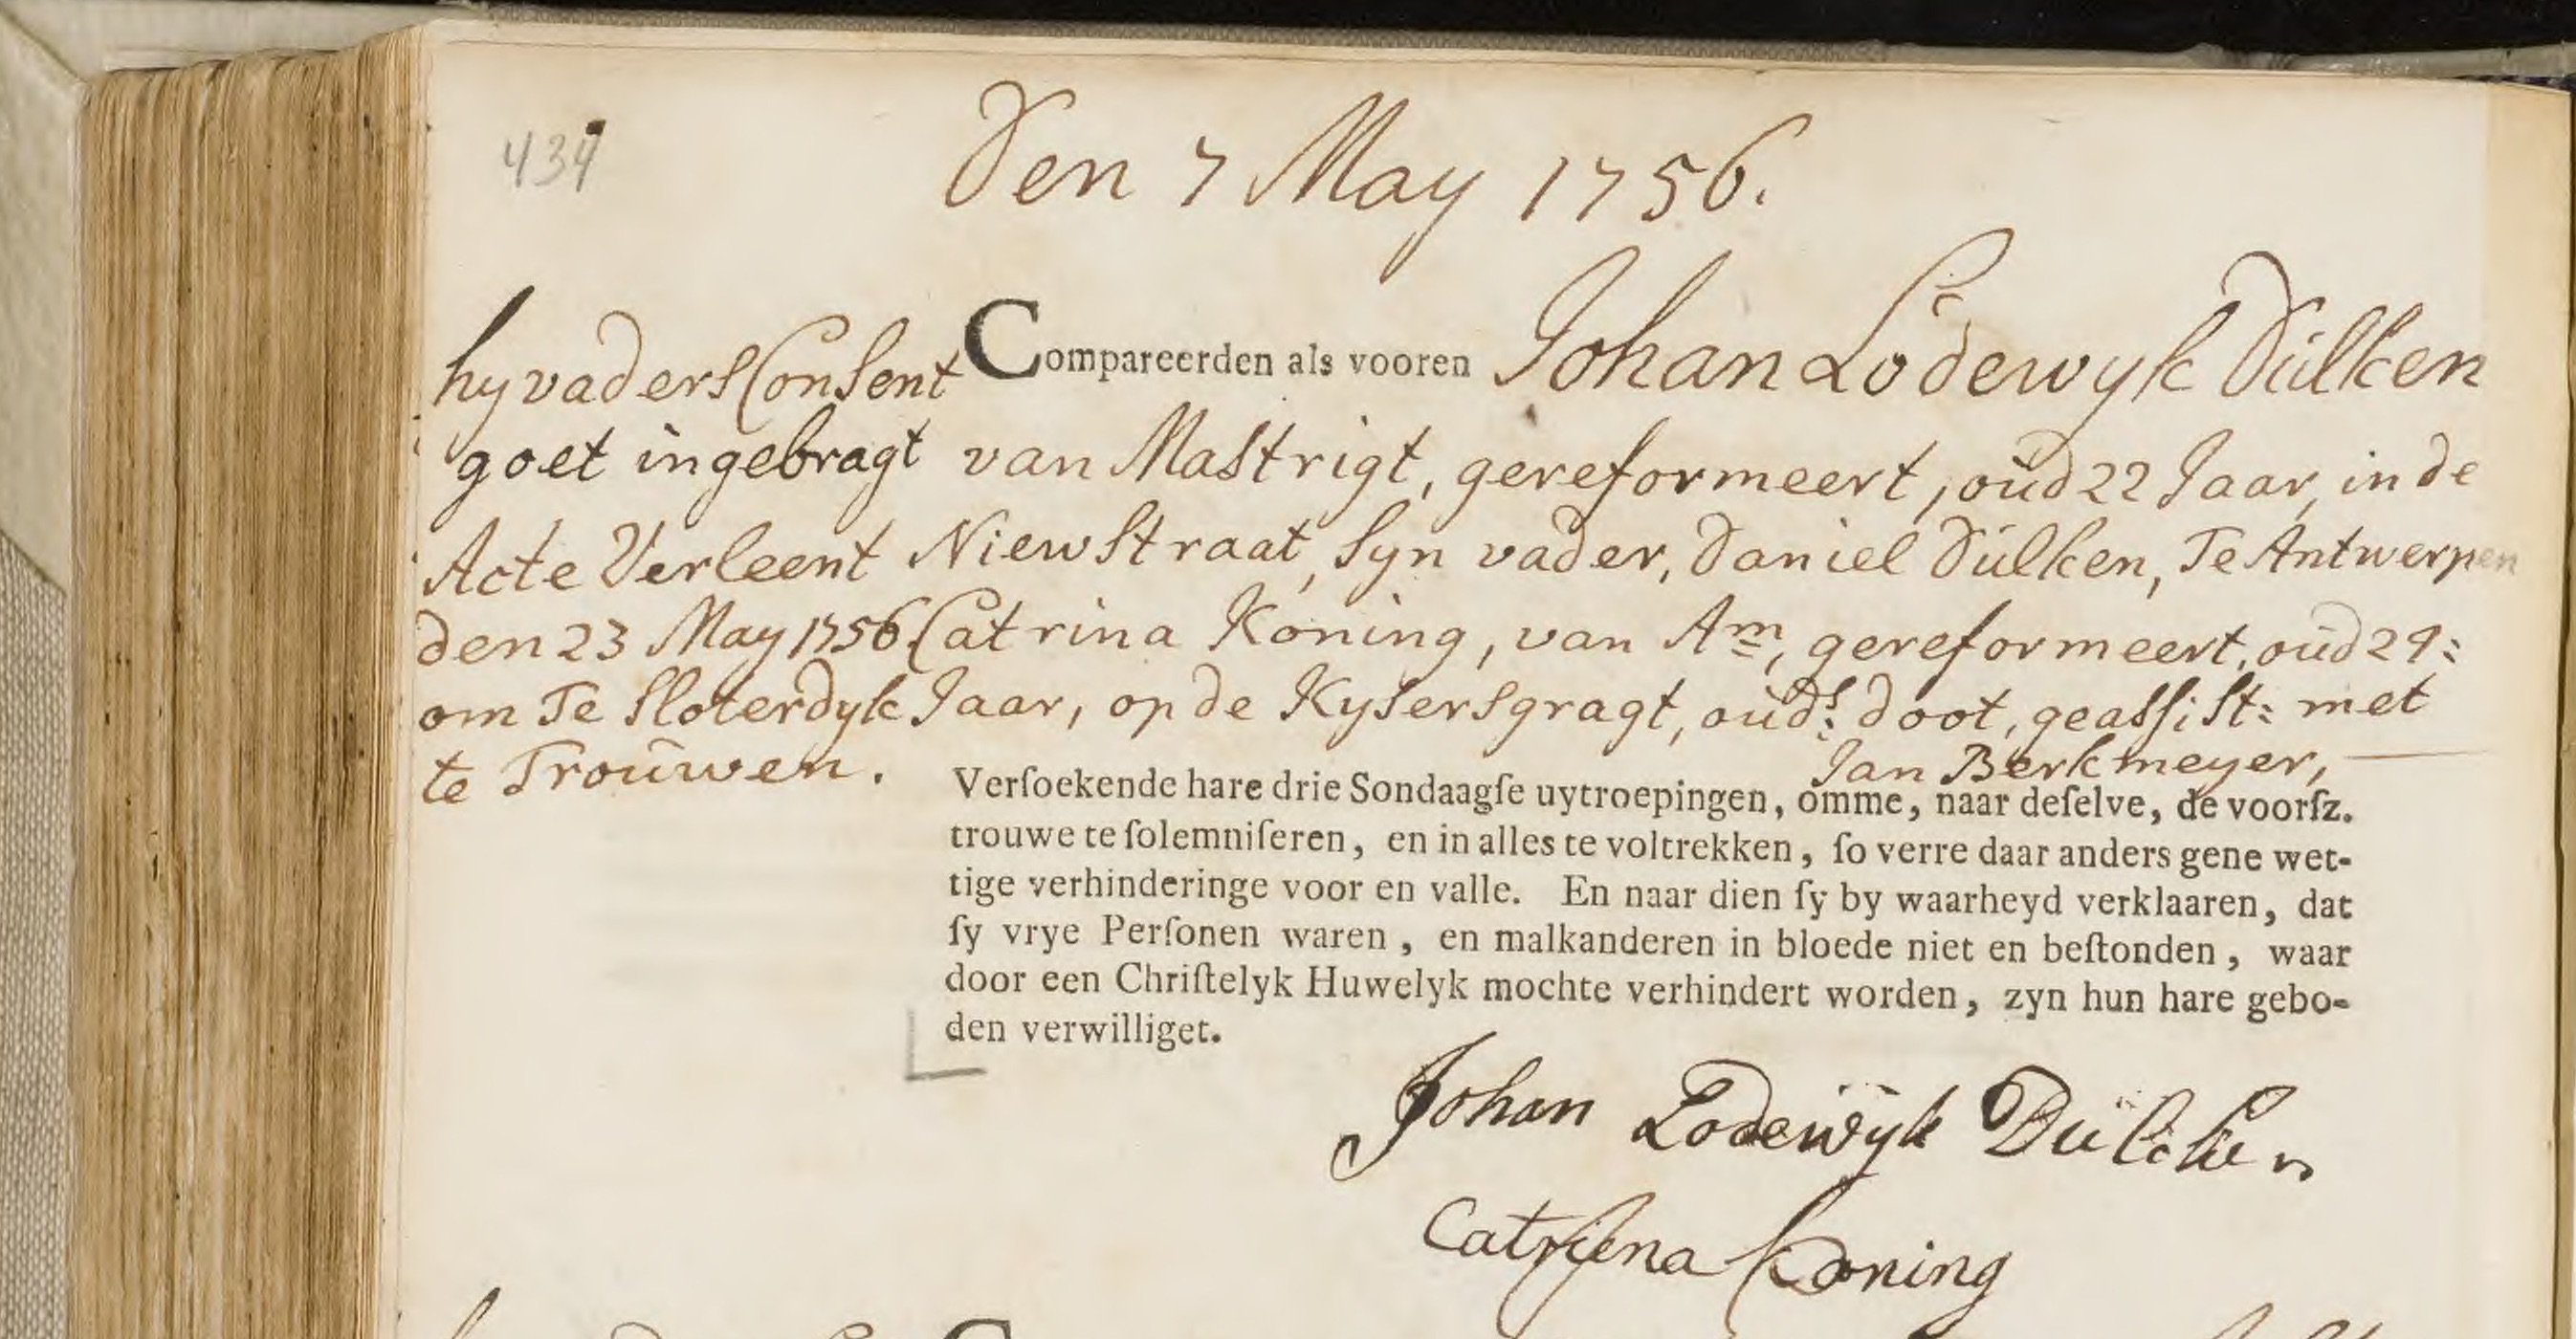 434
Den 7 May 1756.
hy vaders Consent
goet ingebragt
Acte Verleent
den 23 May 1756
om Te Sloterdyk
te Trouwen.
Compareerden als vooren Johan Lodewyk Dülken
van Mastrigt, gereformeert, oud 22 Jaar, in de
Niewstraat, Syn vader, Daniel Dülken, Te Antwerpen
Catrina Koning, van Am, gereformeert, oud 29:
Jaar, op de Kysersgragt, ouds: doot, geassist: met
Jan Berkmeyer,
Verſoekende hare drie Sondaagſe uytroepingen, omme, naar deſelve, de voorſz.
trouwe te ſolemniſeren, en in alles te voltrekken, ſo verre daar anders gene wet-
tige verhinderinge voor en valle. En naar dien ſy by waarheyd verklaaren, dat
ſy vrye Perſonen waren, en malkanderen in bloede niet en beſtonden, waar
door een Chriſtelyk Huwelyk mochte verhindert worden, zyn hun hare gebo-
den verwilliget.
Johan Lodewyk Dülcken
Catryna Koning